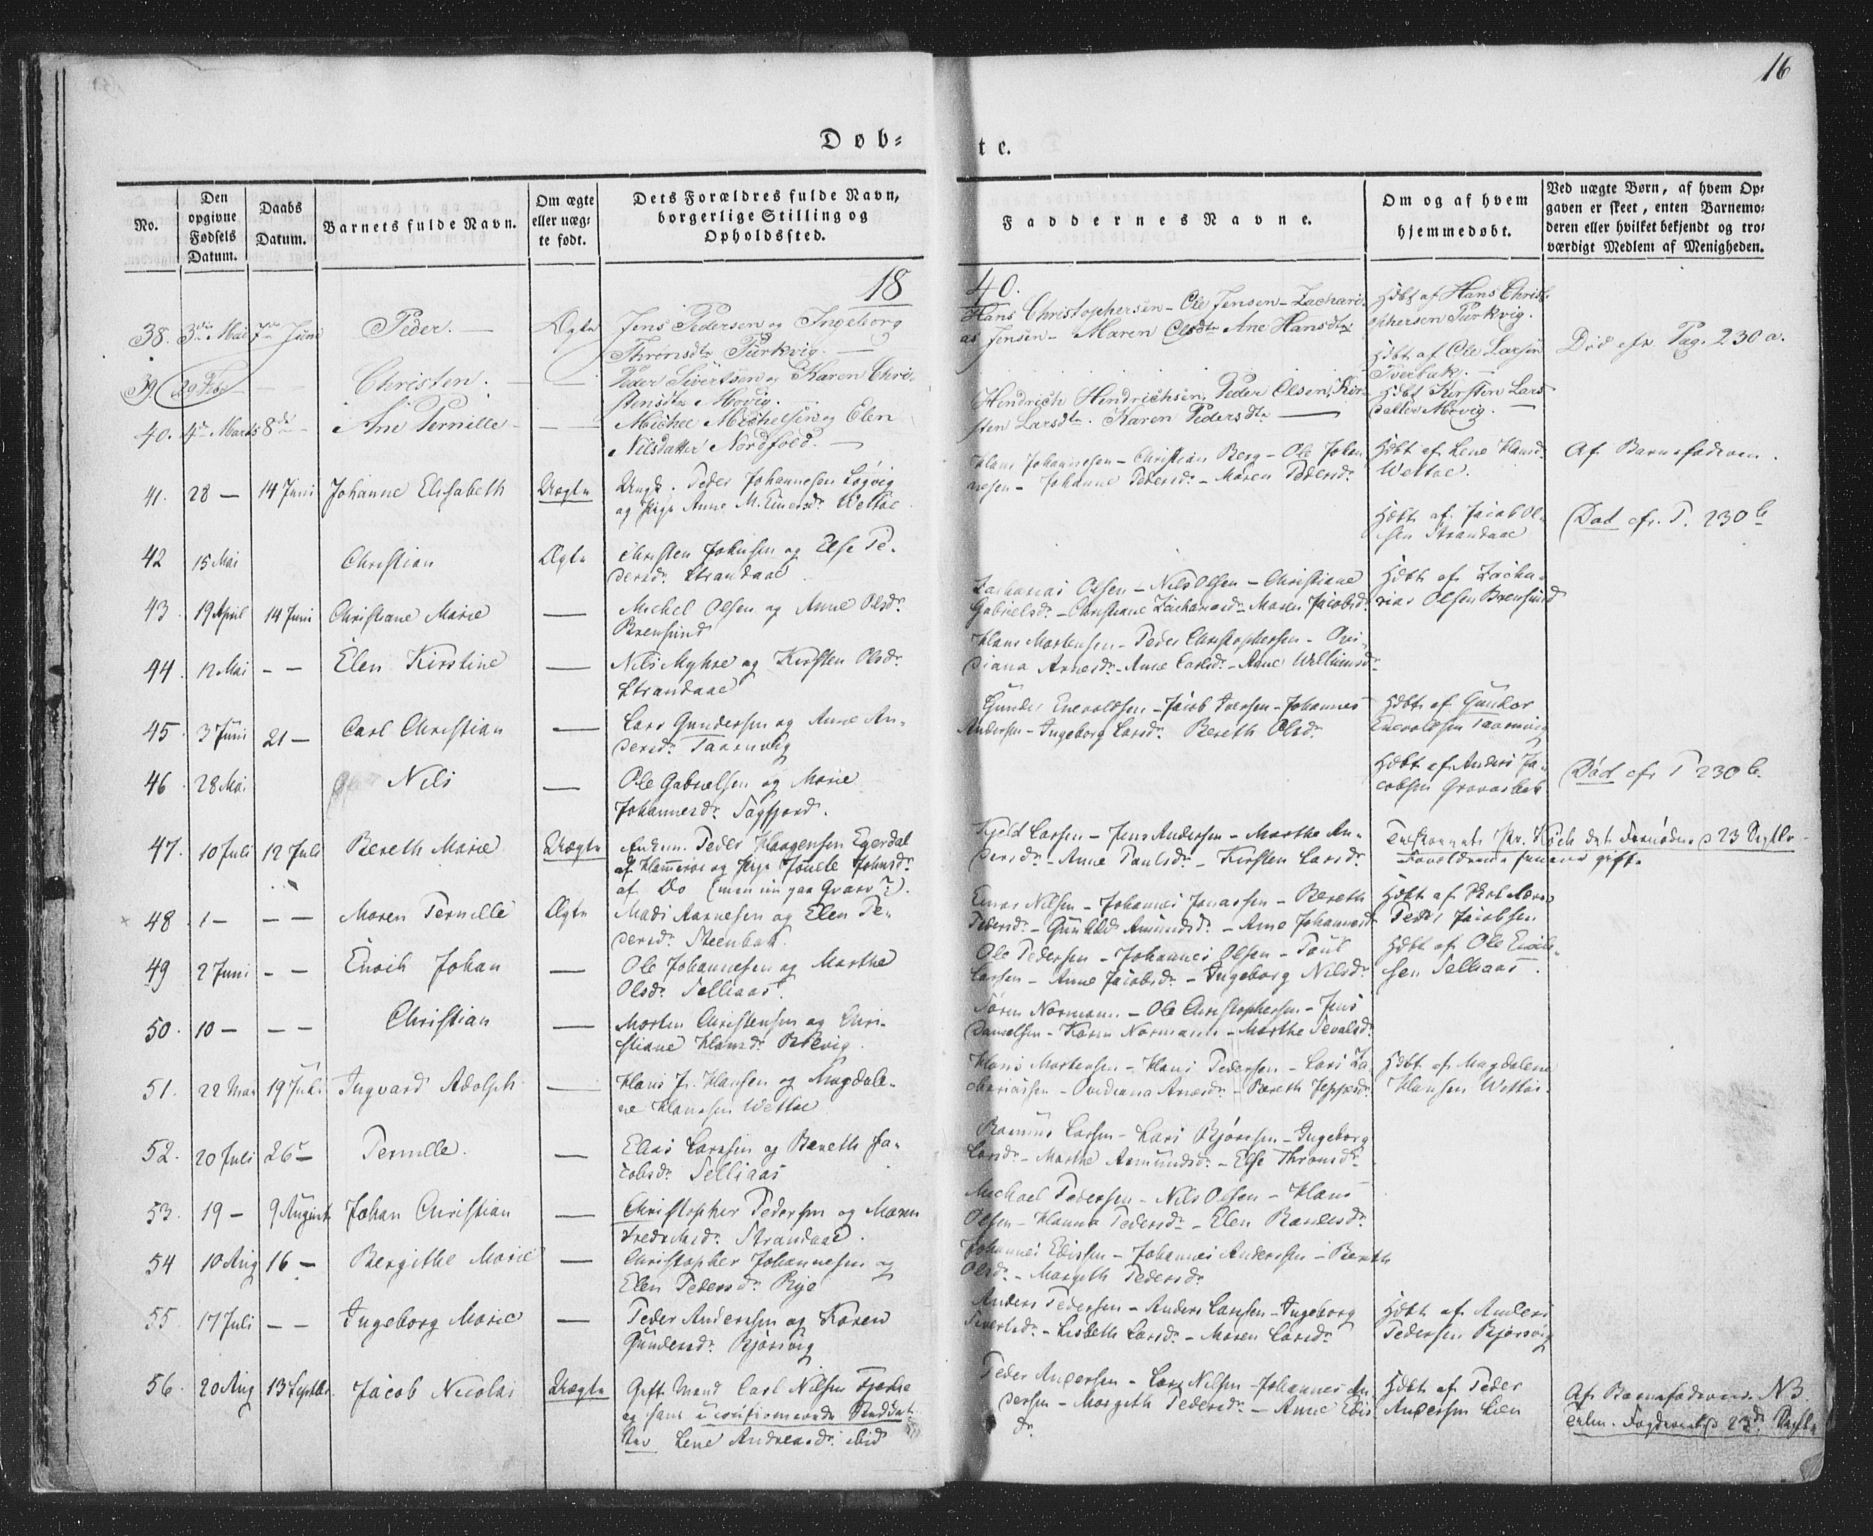 16
Døb-
te.
No.
Den opgivne Fødsels Datum.
Daabs Datum.
Barnets fulde Navn.
Om ægte eller uægte født.
Dets Forældres fulde Navn, borgerlige Stilling og Opholdssted.
Faddernes Navne.
Om og af hvem hjemmedøbt.
Ved uægte Børn, af hvem Opgaven er skeet, enten Barnemoderen eller hvilket bekjendt og troværdigt Medlem af Menigheden.
18
40.
38. 3die Mai 7de Juni Peder. — Ægte Jens Pedersen og Ingeborg
Hans Christophersen - Ole Jensen - Zachari-
as Jensen - Maren Olsdtr Ane Hansdtr
Hdbt af Hans Christ-
ophersen Purkvig.
39. 29 — — Christen. — — Peder Sivertsen og Karen Chri-
stensdtr Movig.
Hdbt af Ole Larsen
Død cfr. Pag. 230 a.
40. 4de Marts 8de — Ane Pernille — — Michel Michelsen og Elen
Nilsdatter Nordfold. —
Hendrich Hendrichsen, Peder Olsen, Kir-
sten Larsdtr. Karen Pedersdtr —
Hdbt Kirsten Lars-
datter Movig. —
41. 28 — 14 Juni Johanne Elisabeth Uægte Ungk. Peder Johannesen Løgvig
og Pige Anne M. Einersdr. Wettøe
Hans Johannesen - Christian Berg - Ole Johan-
nesen - Johanne Pedersdr. - Maren Pedersdr.
Hdbt af Lene Hansd.
Wettøe.
Af Barnefaderen.
42 15 Mai Christian Ægte Christen Johnsen og Else Pe-
dersdr. Strandaae
Hdbt af Jacob Ol-
sen Strandaae
Død cfr. P. 230 b
43. 19 April 14 Juni Christiane Marie — Michel Olsen og Anne Olsdr.
Brensund
Zacharias Olsen - Nils Olsen - Christiane
Gabrielsdr. - Christiane Zachariasdr. - Maren Jacobsdr.
Hdbt af Zacha-
rias Olsen Brensund
44. 12 Mai — — Elen Kirstine — Nils Myhre og Kirsten Olsdr.
Strandaae
Hans Mortensen - Peder Christophersen - Ovi-
diana Arnesdr. - Anne Larsdr. - Anne Willumsdr.
45. 3 Juni 21 — Carl Christian — Lars Gundersen og Anne An-
dersdr. Taarnvig
Gunder Enevoldsen - Jacob Iversen - Johannes
Andersen - Ingeborg Larsdr. Bereth Olsdr.
Hdbt af Gunder
Enevoldsen Taarnvig
46. 28 Mai Nils — Ole Gabrielsen og Marie
Johannesdr. Sagfjord.
Hdbt af Anders Ja-
cobsen Gravasbak
Død cfr P 230 b.
47. 10 Juli 12 Juli Bereth Marie Uægte Peder Haagensen Egerdal
af Hammerøe og Pige Johnsdr.
af Do
Kjeld Larsen - Jens Andersen - Marthe An-
dersdr. - Anne Paulsdr. - Kirsten Larsdr.
Forældrene gift.
48. 1 — — — Maren Pernille Ægte Mads Aarnesen og Elen Pe-
dersdr. Steenbak.
Einar Nilsen - Johannes Jonassen - Bereth
Pedersdr. - Gunhild Amundsdr. - Anne Johannesdr.
Hdbt af
Peder Jacobsen
49 2 Juni — — Enoch Johan — Ole Johannesen og Marthe
Olsdr. Selliaas.
Ole Pedersen - Johannes Olsen - Poul
Larsen - Anne Jacobsdr. - Ingeborg Nilsdr.
Hdbt af Ole
Selliaas.
50. 10 — — — Christian — Morten Christensen og Chri-
stiane Hansdr.
Søren Normann - Ole Christophersen - Jens
Danielsen - Karen Normann - Marthe
51. 22 Mai 19 Juli Ingvard Adolph — Hans J. Hansen og Magdale-
ne Hansen Wettøe
Hans Mortensen - Hans Pedersen - Lars Za-
chariassen - Ovidiana Arnesdr. - Bereth Jeppesdr.
Hdbt af Magdalene
Hansen Wettøe.
52. 20 Juli 26 — Pernille. — Elias Larssen og Bereth Ja-
cobsdr. Selliaas
Rasmus Larsen - Lars Bjørnsen - Ingeborg
Larsdr. - Marthe Asmundsdr. - Else Thronsdr.
53. 19 — 9 August Johan Christian — Christopher Pedersen og Maren
Fredriksdr. Strandaae.
Michael Pedersen - Nils Olsen - Hans
Olsen - Hanna Pedersdr. - Elen
54 10 Aug 16 — Bergithe Marie — Christopher Johannesen og
Elen Pedersdr. Rye
Johannes - Johannes Anderssen - Bereth
Olsdr. - Margith Pedersdr.
55. 17 Juli — — Ingeborg Marie — Peder Andersen og Karen
Gundersdr. Bjørsvig
Anders Pedersen - Anders Larssen - Ingeborg
Sivertsdr. - Lisbeth Larsdr. - Maren Larsdr.
Hdbt af Anders
Pedersen Bjørsvig
56. 20 Aug 13 Septbr. Jacob Nicolai Uægte Gift Mand Carl Nilsen
og hans uconfirmerede
Lene Andreasdr. ibid
Peder Andersen - Lars Nilsen - Johannes An-
dersen - Margith Pedersdr. - Anne
dr.
Hdbt af Peder
Andersen Lien
Af Barnefaderen. NB.